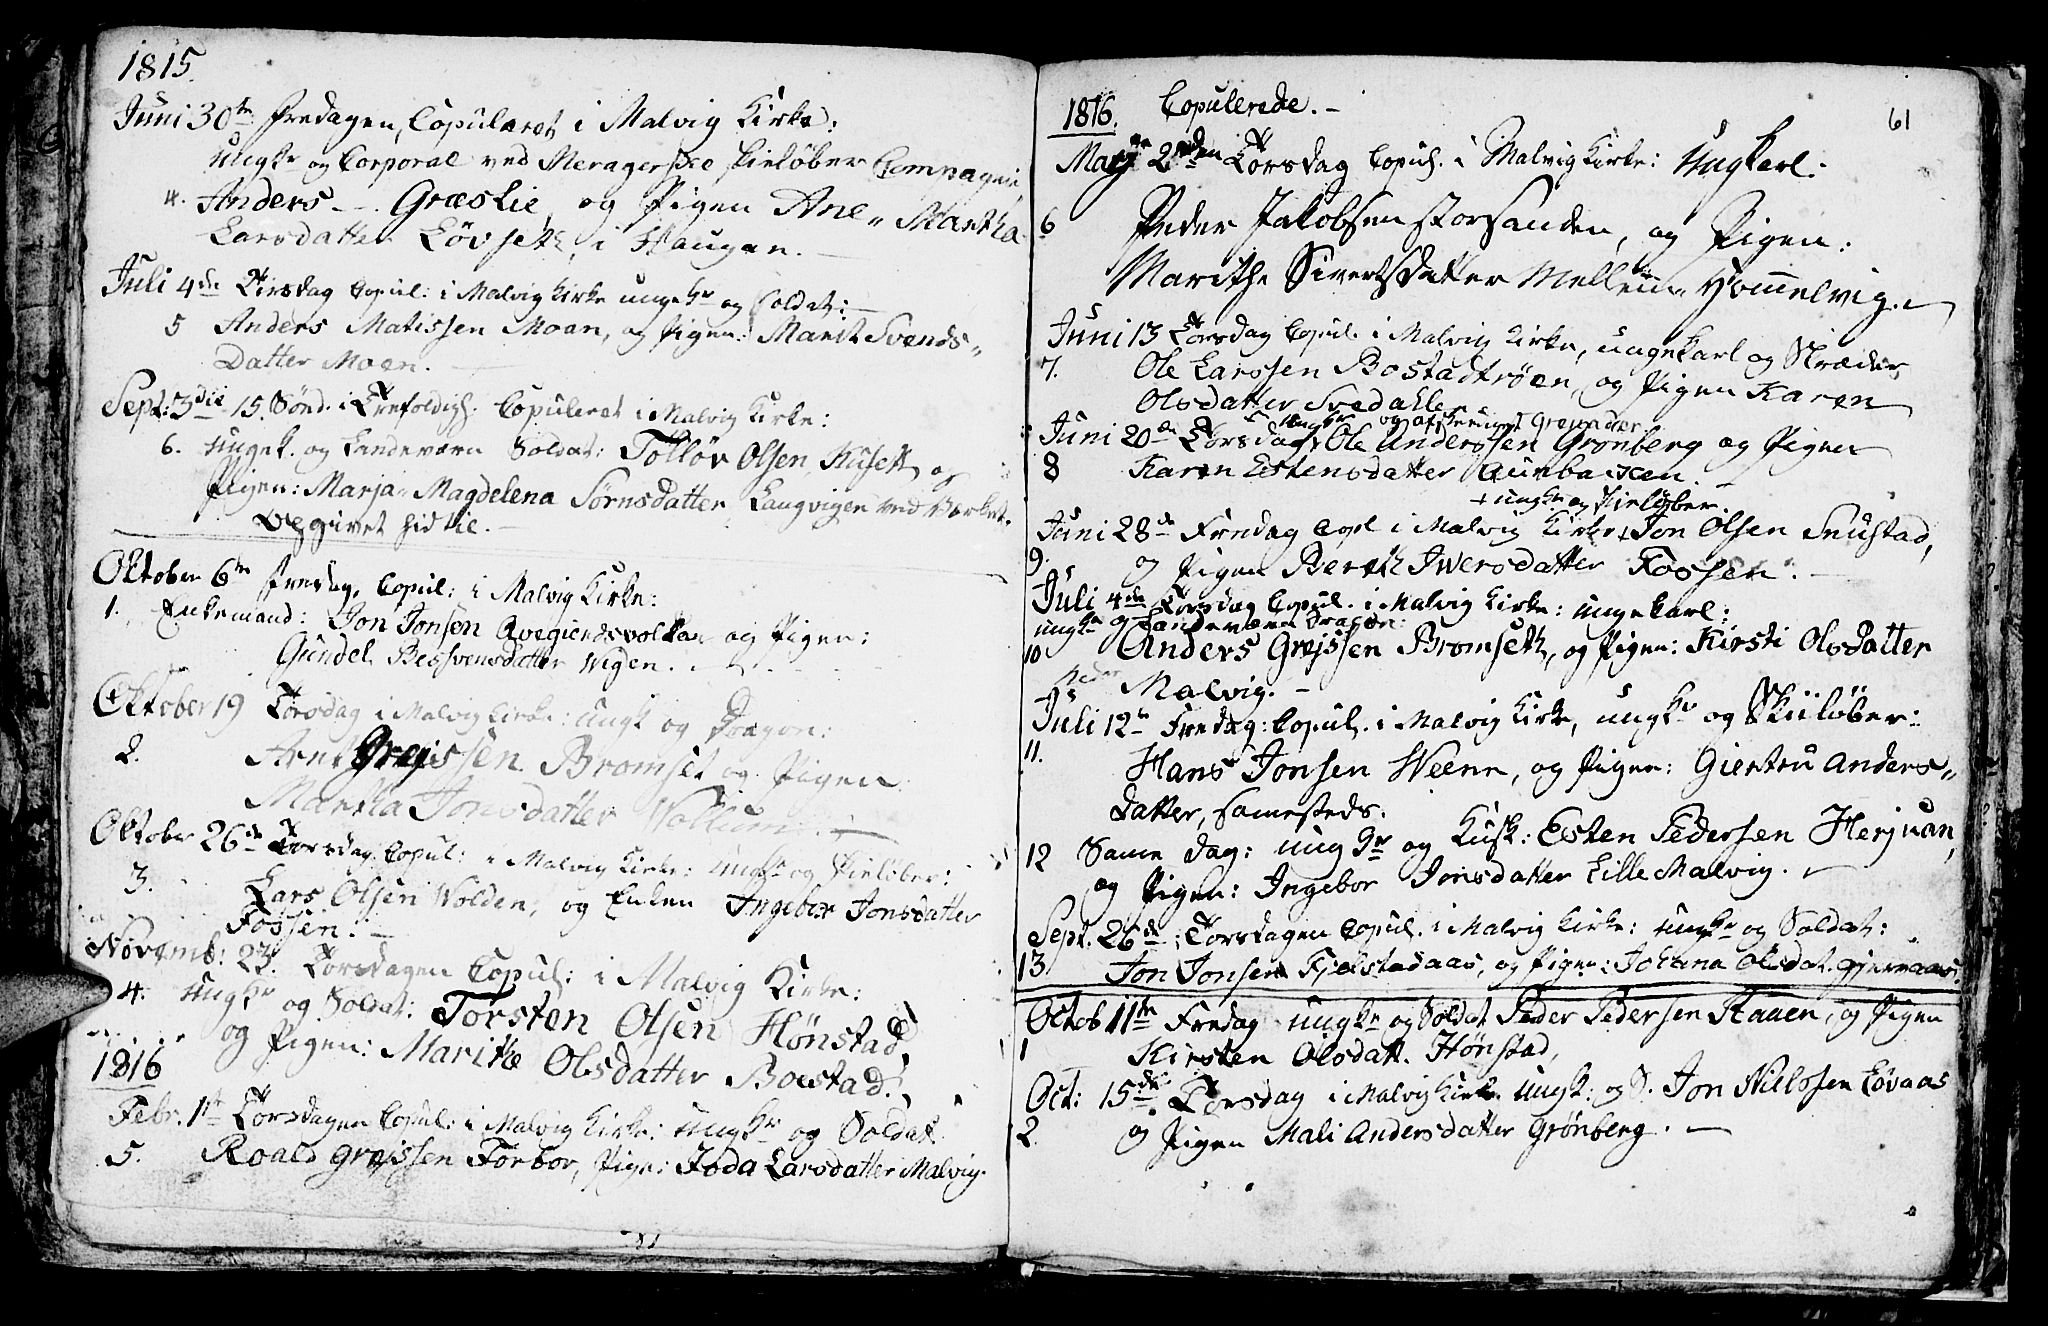 1815.
Juni 30te Fredagen, Copuleret i Malvig Kirke:
Ungkr og Corporal ved Meragerske Skieløber Compagnie
4. Anders - - Græslie, og Pigen Ane Martha
Larsdatter Løvseth, i Haugan. -
Juli 4de Tirsdag Copul: i Malvig Kirke ungekr og Soldat: -
5 Anders Matissen Moan, og Pigen: Marit Svends„
Datter Moen. -
Sept: 3die 15. Sønd. i Trefoldigh. Copuleret i Malvig Kirke:
6. Ungek. og Landeværn Soldat: Tolløv Olsen Husett, og
Pigen: Marja Magdelena Sørnsdatter Langvigen ved Værket.
Opgivet hidtil. -
Oktober 6te Fredag, Copul: i Malvig Kirke:
1. Enkemand: Jon Jonsen Avegiendsvolkan og Pigen:
Gundel Bessvensdatter Wigen. -
Oktober 19 Torsdag i Malvig Kirke: Ungk og Dragon:
2. Arnt Grejssen Bromset og Pigen
Martha Jonsdatter Vollum. -
Oktober 26de Torsdag Copul: i Malvig Kirke: Ungkr og Skieløber:
3. Lars Olsen Wolden, og Enken Ingebor Jonsdatter
Fossen. -
Novemb: 23. Torsdagen Copul: i Malvig Kirke:
4. Ungkr og Soldat: Torsten Olsen Hønstad,
og Pigen: Marithe Olsdatter Boestad.
1816
Febr. 1st Torsdagen Copul: i Malvig Kirke: Ungkr og Soldat
5. Roald Grejssen Forbor, Pige: Joda Larsdatter Malvig.
1816. Copulerede. - 61
Maj 2den Torsdag Copul. i Malvig Kirke: Ungkarl.
6 Peder Jakobsen Storsanden, og Pigen:
Marithe Sivertsdatter Mellem Hommelvig. -
Juni 13 Torsdag Copul. i Malvig Kirke, ungekarl og Skræder
7. Ole Larssen Bostadtrøen, og Pigen Karen
Olsdatter Svedahle
Ungkr og afskeediget Grenander
Juni 20de Torsdag Ole Anderssen Grønberg og Pigen
8 Karen Estensdatter Aunbakken.
+ ungkr og Skieløber.
Juni 28de Fredag Copl i Malvig Kirke + Jon Olsen Snustad,
9. og Pigen Bereth Iwersdatter Fossen. -
Juli 4de Torsdag Copul. i Malvig Kirke: ungekarl:
ungkr og Landeværn Dragon:
10 Anders Grejssen Bromseth, og Pigen: Kirsti Olsdatter
Neder Malvig. -
Juli 12te Fredag: Copul. i Malvig Kirke, ungkr og Skiiløber:
11. Hans Jonsen Weene, og Pigen: Giertru Anders„
datter, samesteds.
12 Same Dag: ungkr og Kusk: Esten Pedersen Herjuan,
og Pigen: Ingebor Jonsdatter Lille Malvig. -
Sept. 26de: Torsdagen Copul. i Malvig Kirke: ungkr og Soldat:
13 Jon Jonsen Fjølstadaas, og Pigen: Johana Olsdat. Gjevaas.
Octob 11te Fredag ungkr og Soldat Peder Pedersen Haaen, og Pigen
1 Kirsten Olsdatt. Hønstad,
Oct: 15de. Torsdag i Malvig Kirke Ungk: og S. Jon Nielssen Løvaas
2. og Pigen Mali Andersdatter Grønberg. -